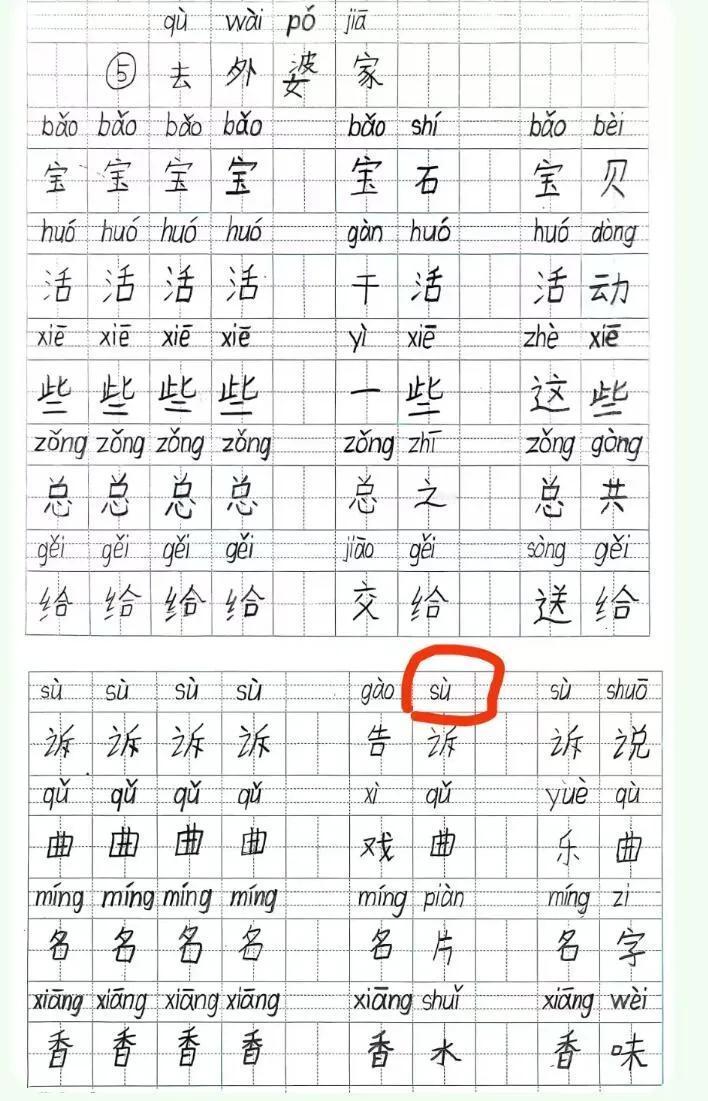 qù wài pó jiā
⑤ 去 外 婆 家
bǎo bǎo bǎo bǎo bǎo shí bǎo bèi
宝 宝 宝 宝 宝 石 宝 贝
huó huó huó huó gàn huó huó dòng
活 活 活 活 干 活 活 动
xiē xiē xiē xiē yì xiē zhè xiē
些 些 些 些 一 些 这 些
zǒng zǒng zǒng zǒng zǒng zhī zǒng gòng
总 总 总 总 总 之 总 共
gěi gěi gěi gěi jiāo gěi sòng gěi
给 给 给 给 交 给 送 给
sù sù sù sù gào sù sù shuō
诉 诉 诉 诉 告 诉 诉 说
qǔ qǔ qǔ qǔ xì qǔ yuè qù
曲 曲 曲 曲 戏 曲 乐 曲
míng míng míng míng míng piàn míng zi
名 名 名 名 名 片 名 字
xiāng xiāng xiāng xiāng xiāng shuǐ xiāng wèi
香 香 香 香 香 水 香 味